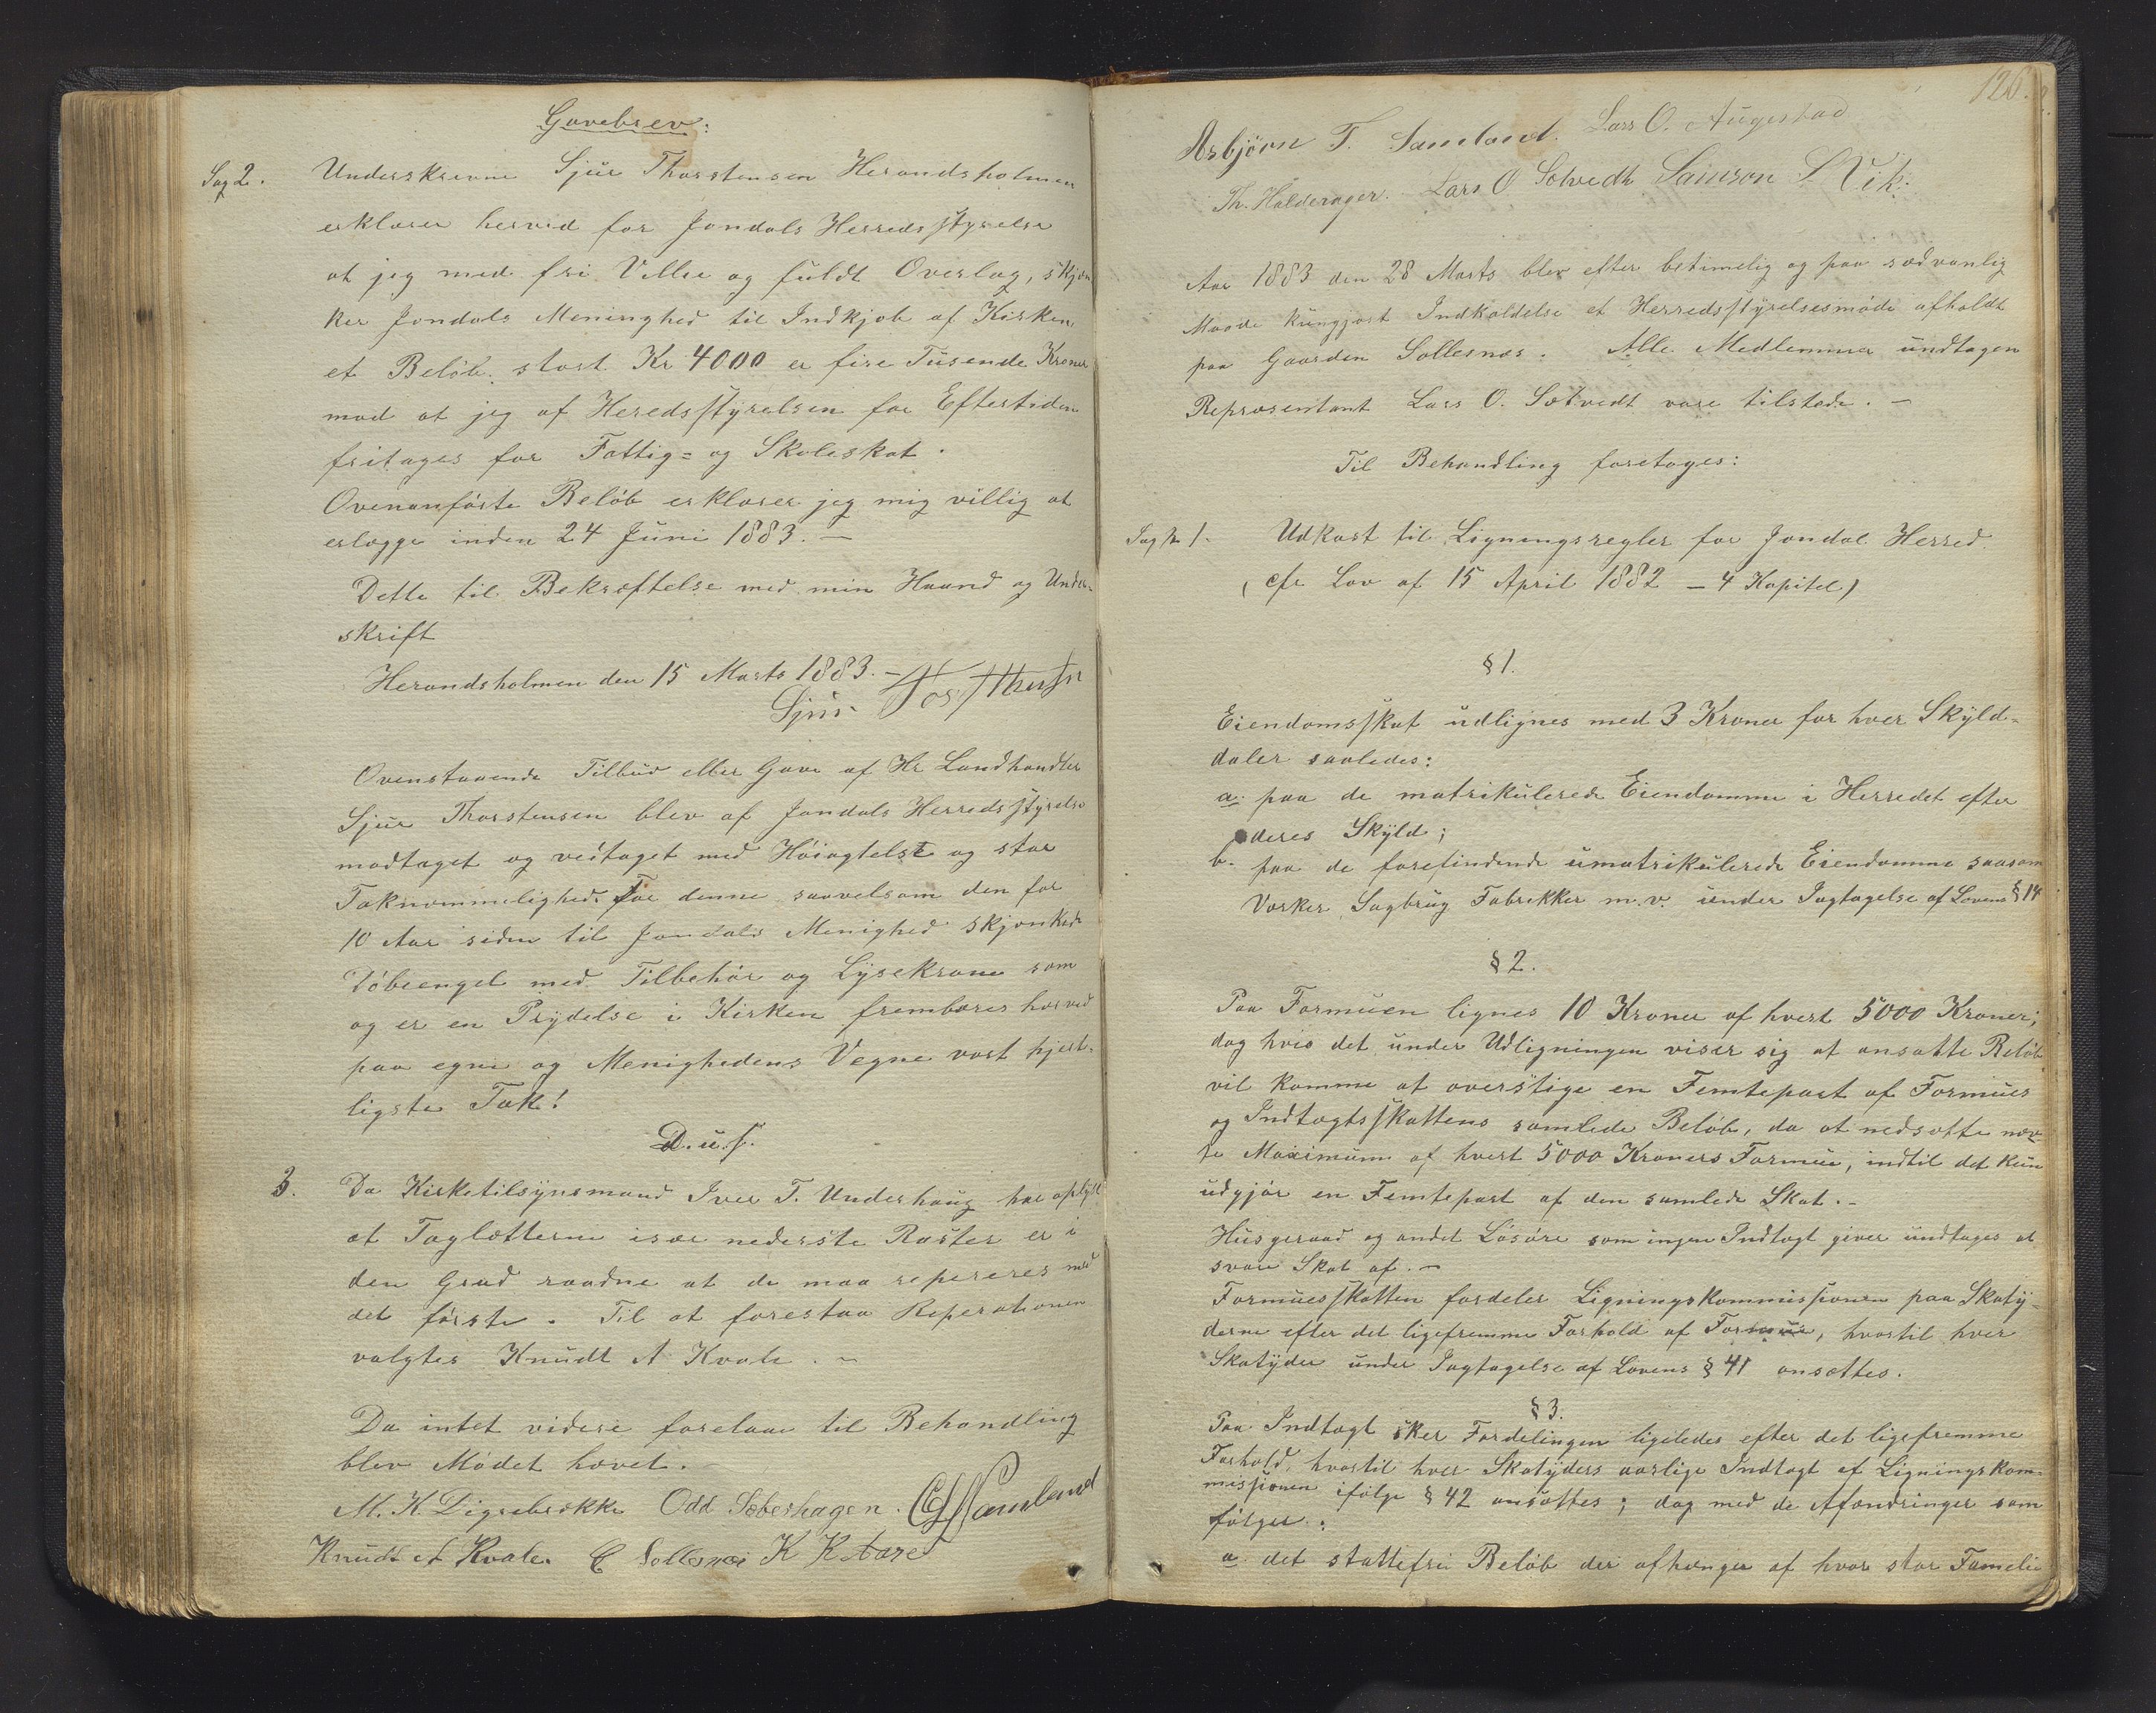 Gavebrev:
Sag 2. Underskrevne Sjur Thorstensen Herandsholmen
erklærer herved for Jondals Herredsstyrelse
at jeg med fri Villie og fuldt Overlæg, skjæn
ker Jondals Meninghed til Indkjøb af Kirken
et Beløb stort Kr 4000 er fire Tusende Kroner
mod at jeg af Heredsstyrelsen for Eftertiden
fritages for Fattig= og Skoleskat.
Ovenanførte Beløb erklærer jeg mig villig at
erlægge inden 24 Juni 1883. –
Dette til Bekræftelse med min Haand og Under-
skrift
Herandsholmen den 15 Marts 1883. –
Sjur
Ovenstaaende Tilbud eller Gave af Hr Landhandler
Sjur Thorstensen blev af Jondals Herredsstyrelse
modtaget og vedtaget med Høiagtelse og stor
Taknemmelighed. For denne saavelsom den for
10 Aar siden til Jondals Menighed skjænkede
Døbeengel med Tilbehør og Lysekrone som
og er en Prydelse i Kirken frembæres herved
paa egne og Menighedens Vegne vort hjert-
ligste Tak!
D.u.s.
3. Da Kirketilsynsmand Iver T. Underhaug har oplyst
at Taglætterne især nederste Raster er i
den Grad raadne at de maa repereres med
det første. Til at forestaa Reperationen
valgtes Knudt A Kvale. –
Da intet videre forelaae til Behandling
blev Mødet hævet. –
M. K. Digrebrekke Odd Sæbershagen. Samland
Knudt A Kvale. C Sollesnæs K K Aase
126.
Asbjørn T. Samland. Lars O. Augestad
Th. Halderager. Lars O Sætvedt Samson S Vik.
Aar 1883 den 28 Marts blev efter betimelig og paa sædvanlig
Maade kungjort Indkaldelse et Herredsstyrelsesmøde afholdt
paa Gaarden Sollesnæs. Alle Medlemmer undtagen
Repræsentant Lars O. Sætvedt vare tilstede. –
Til Behandling foretoges:
Sag № 1. Udkast til Ligningsregler for Jondal Herred
(cfr Lov af 15 April 1882 – 4 Kapitel)
§ 1.
Eiendomsskat udlignes med 3 Kroner for hver Skyld-
daler saaledes:
a. paa de matrikulerede Eiendomme i Herredet efter
deres Skyld;
b. paa de forefindende umatrikulerede Eiendomme saasom
Værker, Sagbrug Fabrikker m.v. under Iagtagelse af Lovens § 14
§ 2.
Paa Formuen lignes 10 Kroner af hvert 5000 Kroner;
dog hvis det under Udligningen viser sig at ansatte Beløb
vil komme at overstige en Femtepart af Formues
og Indtægtsskattens samlede Beløb, da at nedsætte næv-
te Maximum af hvert 5000 Kroners Formue, indtil det kun
udgjør en Femtepart af den samlede Skat. –
Husgeraad og andet Løsøre som ingen Indtægt giver undtages at
svare Skat af. –
Formuesskatten fordeler Ligningskommissionen paa Skaty-
derne efter det ligefremme Forhold af Formue, hvortil hver
Skatyder under Iagtagelse af Lovens § 41 ansættes.
§ 3.
Paa Indtægt sker Fordelingen ligeledes efter det ligefremme
Forhold, hvortil hver Skatyders aarlige Indtægt af Ligningskom-
missionen ifølge § 42 ansættes; dog med de Afændringer som
følger:
a. det skattefri Beløb der afhænger af hvor stor Familie